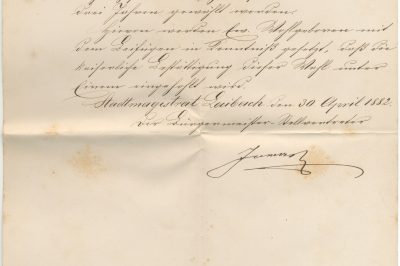 drei Jahren gewählt worden.
Hievon werden Ew. Wohlgeboren mit
dem Beifügen in Kenntniß gesetzt, daß die
kaiserliche Bestättigung dieser Wahl unter
Einem eingeholt wird.
Stadtmagistrat Laibach, den 30 April 1882
Der Bürgermeister-Stellvertreter